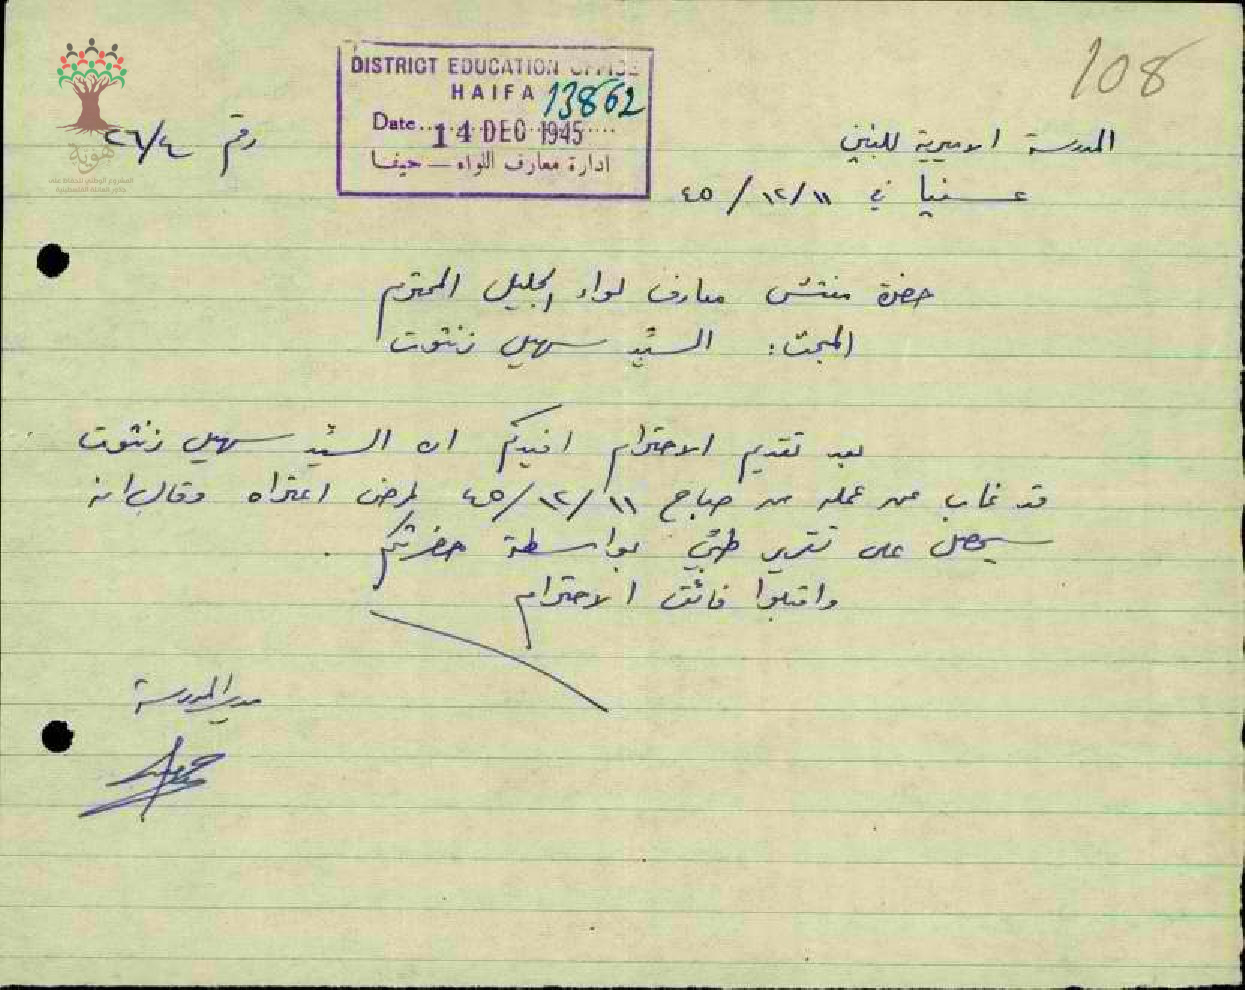 108
DISTRICT EDUCATION OFFICE
HAIFA 13862
Date 14 DEC 1945
ادارة معارف اللواء — حيفا
المدرسة الاميرية للبنين
رقم ٢٦/٤
عسفيا في ١١/١٢/٤٥
هوية
المشروع الوطني للحفاظ على
جذور العائلة الفلسطينية
حضرة مفتش معارف لواء الجليل المحترم
المبحث: السيد سهيل زنتوت
بعد تقديم الاحترام افيدكم ان السيد سهيل زنتوت
قد غاب عن عمله من صباح ١١/١٢/٤٥ لمرض اعتراه وقال انه
سيحصل على تقرير طبي بواسطة حضرتكم.
واقبلوا فائق الاحترام
مدير المدرسة